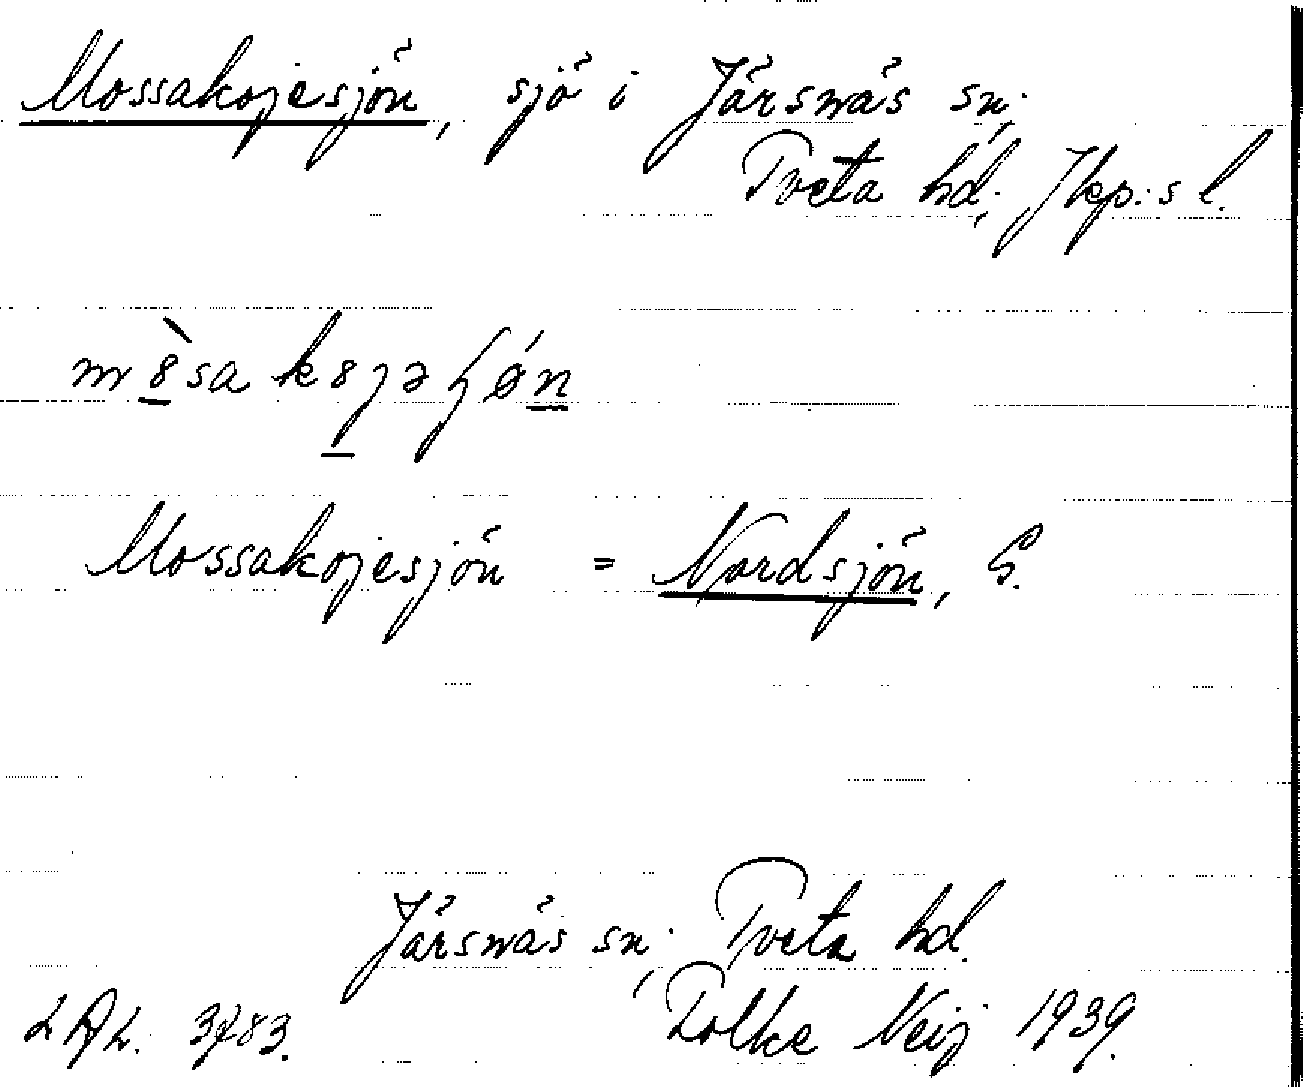 Mossakojesjön, sjö i Järsnäs sn;
Tveta hd; Jkp:s l.
Mossakojesjön = Nordsjön, G.
Järsnäs sn; Tveta hd.
Folke Neij 1939.